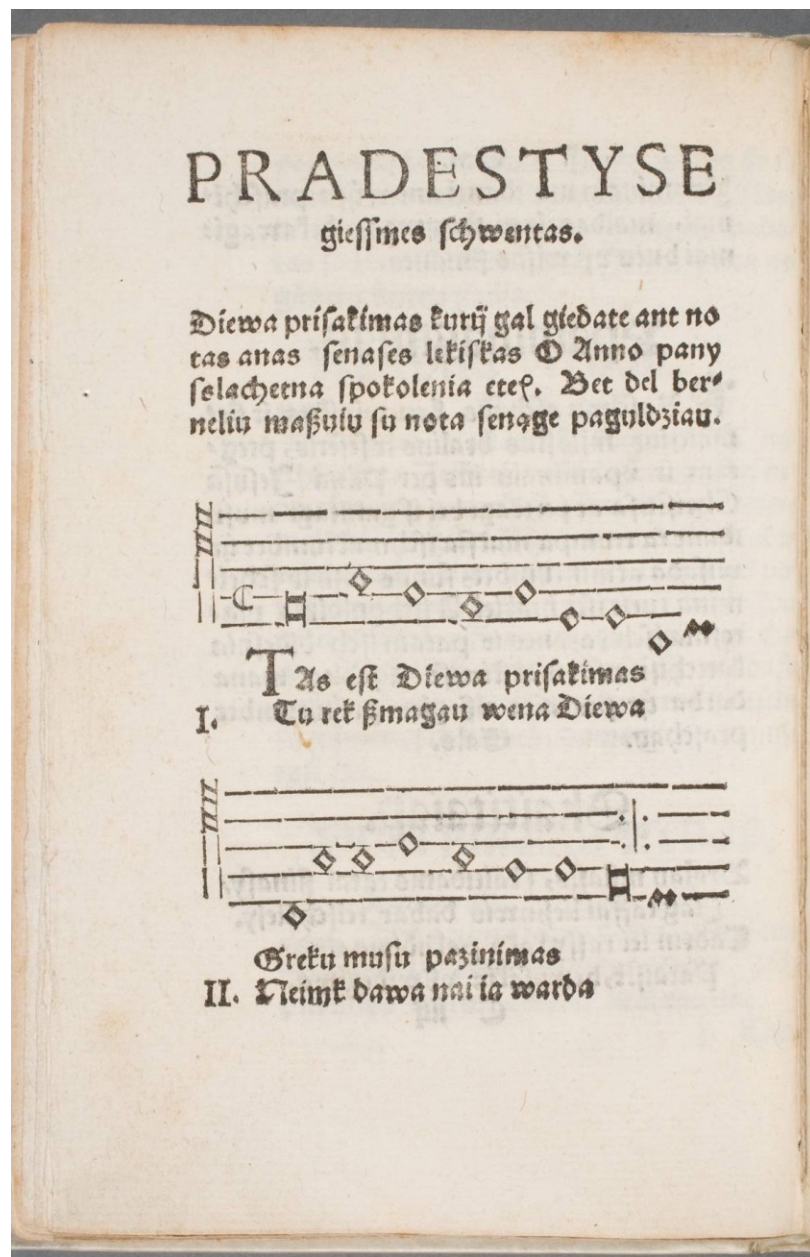 PRADESTYSE
gieſſmes ſchwentas.
Diewa priſakimas kurÿ gal giedate ant no
tas anas ſenaſes lekiſkas O Anno pany
ſslachetna ſpokolenia etcꝭ. Bet del ber⸗
neliu maßuiu ſu nota ſenąge paguldziau.
TAs eſt Diewa priſakimas
I. Tu rek ßmagau wena Diewa
Greku muſu pazinimas
II. Neimk dawa nai ia warda